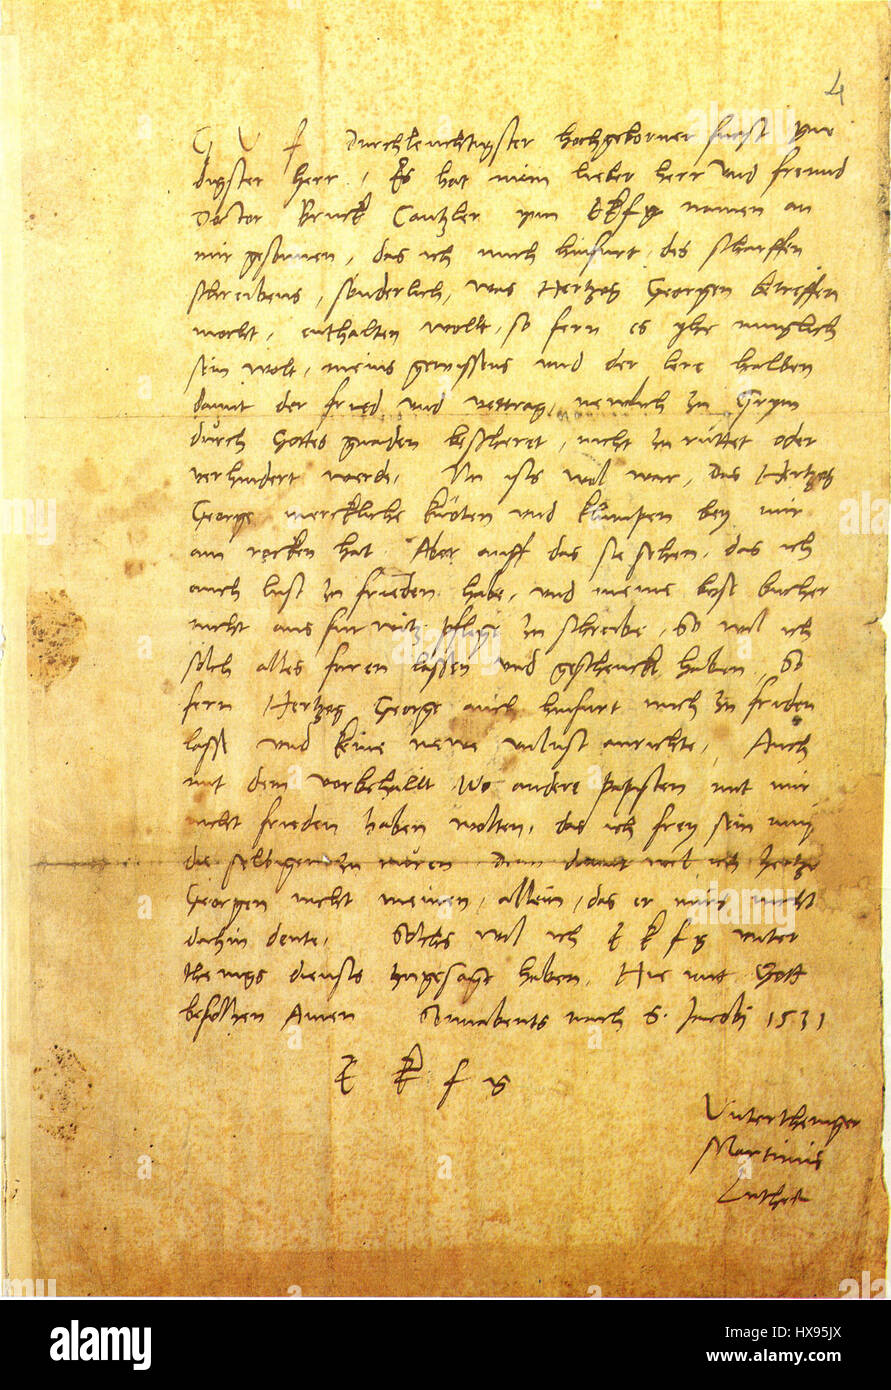 4
G V f Durchleuchtigster hochgeborner furst gne
digster herr, Es hat mein lieber herr und freund
Doctor Bruck Cantzler ynn EKfg namen an
mir gesonnen, das ich mich hinfurt des scharffen
schreibens, sonderlich, was Hertzog Georgen betreffen
mocht, enthalten wollt, so fern es yhe muglich
sein wolt, meins gewissens und der lere halben
damit der fried und vertrag, newlich zu Grym
durch Gottes gnaden bescheret, nicht zu ruttet oder
verhindert werde, Nu ists wol war, das Hertzog
George merckliche knoten und klumpen bey mir
am rocken hat. Aber auff das sie sehen, das ich
auch lust zu frieden habe, und meine bose bucher
nicht aus furwitz pflege zu schreibe, So wil ich
solch alles faren lassen und geschenckt haben, So
fern Hertzog George auch hinfurt mich zu friden
lasst und keine newe unlust anrichte, Auch
mit dem vorbehallt Wo andere Papisten mit mir
nicht frieden haben wolten, das ich frey sein mug
die selbigen zu ruren Denn damit wil ich Hertzog
Georgen nicht meinen, allein, das er mirs nicht
dahin deute, Solchs wil ich E K f g unter
thenigs diensts zugesagt haben, Hie mit Gott
befolhen Amen Sonnabents nach S. Jacobi 1531
E K f g
Untertheniger
Martinus
Luther
alamy
Image ID: HX95JX
www.alamy.com